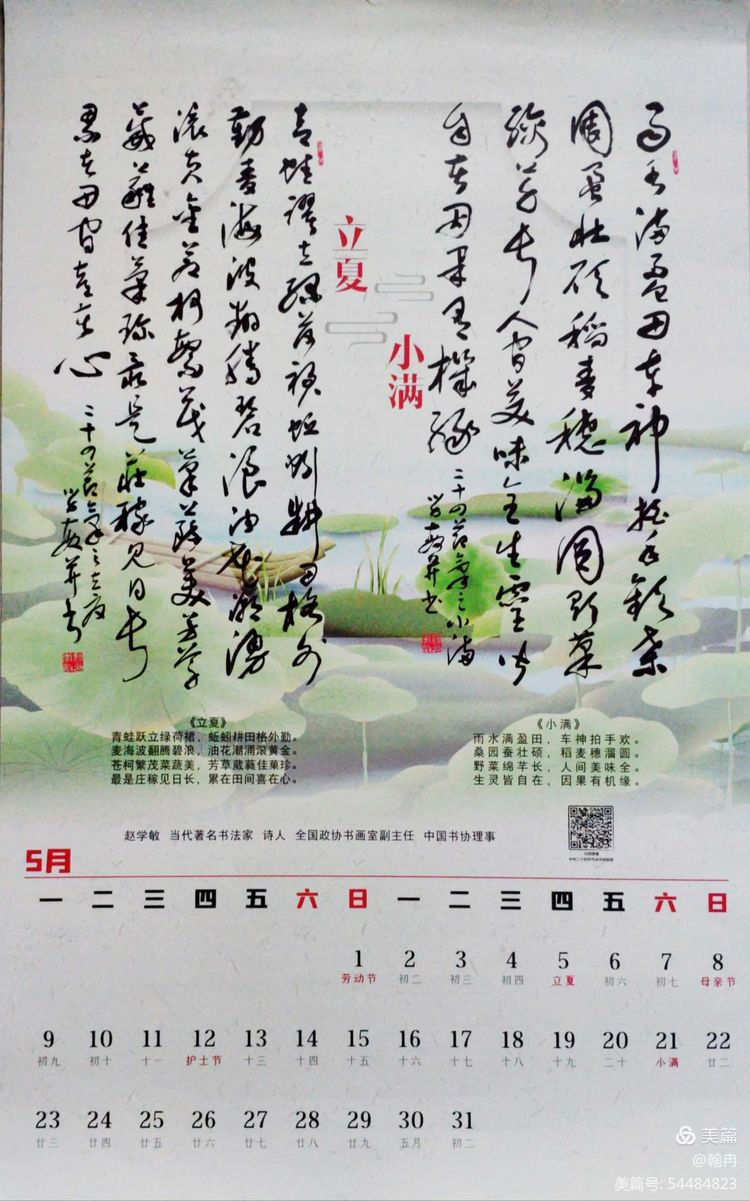 雨水满盈田车神拍手欢桑
园蚕壮硕稻麦穗溜圆野菜
绵芊长人间美味全生灵皆
自在因果有机缘 二十四节气之小满
学敏并书
小满
立夏
青蛙跃立绿荷裙蚯蚓耕田格外
勤麦海波翻腾碧浪油花潮涌
滚黄金苍柯繁茂菜蔬美芳草
葳蕤佳菓珍最是庄稼见日长
累在田间喜在心 二十四节气之立夏
学敏并书
《立夏》
青蛙跃立绿荷裙，蚯蚓耕田格外勤。
麦海波翻腾碧浪，油花潮涌滚黄金。
苍柯繁茂菜蔬美，芳草葳蕤佳菓珍。
最是庄稼见日长，累在田间喜在心。
《小满》
雨水满盈田，车神拍手欢。
桑园蚕壮硕，稻麦穗溜圆。
野菜绵芊长，人间美味全。
生灵皆自在，因果有机缘。
赵学敏 当代著名书法家 诗人 全国政协书画室副主任 中国书协理事
5月
一 二 三 四 五 六 日 一 二 三 四 五 六 日
1 2 3 4 5 6 7 8
劳动节 初二 初三 初四 立夏 初六 初七 母亲节
9 10 11 12 13 14 15 16 17 18 19 20 21 22
初九 初十 十一 护士节 十三 十四 十五 十六 十七 十八 十九 二十 小满 廿二
23 24 25 26 27 28 29 30 31
廿三 廿四 廿五 廿六 廿七 廿八 廿九 五月 初二
美篇
@翰冉
美篇号: 54484823